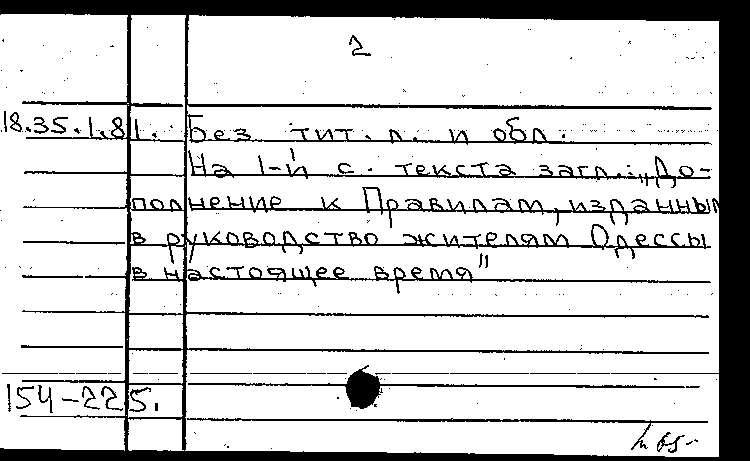 2
18.35.1.81. Без тит. л. и обл.
На 1-й с. текста загл.: „До-
полнение к Правилам, изданным
в руководство жителям Одессы
в настоящее время"
154-225.